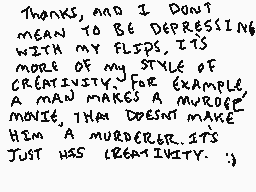 Thanks, AND I DONT
MEAN TO BE DEPRESSING
WITH MY FLIPS, IT'S
MORE OF my STYLE OF
CREATIVITY. FOR EXAMPLE,
A MAN MAKES A MURDER
MOVIE, THAT DOESNT MAKE
HIM A MURDERER. IT'S
JUST HIS CREATIVITY. :)